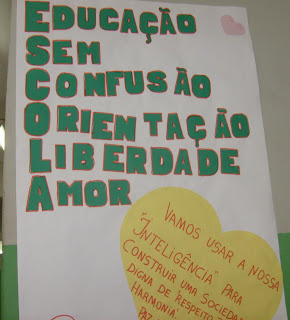 EDUCAÇÃO
SEM
CONFUSÃO
ORIENTAÇÃO
LIBERDADE
AMOR
VAMOS USAR A NOSSA
"INTELIGÊNCIA" PARA
CONSTRUIR UMA SOCIEDADE
DIGNA DE RESPEITO
HARMONIA
PAZ